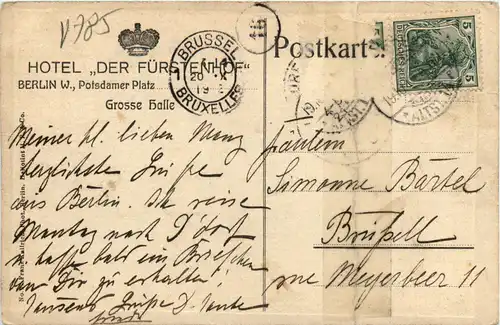 V785
HOTEL „DER FÜRSTENHOF"
BERLIN W., Potsdamer Platz
Grosse Halle
BRUSSEL
BRUXELLES
Postkarte.
DEUTSCHES REICH
5
Meiner kl. lieben
herzlichste Grüße
aus Berlin. Ich reise
Montag nach D'dorf
u. hoffe bald ein Briefchen
von Dir zu erhalten!
Tausend Grüße D. Tante
Fräulein
Simonne Bärtel
Brüssell
rue Meyerbeer 11